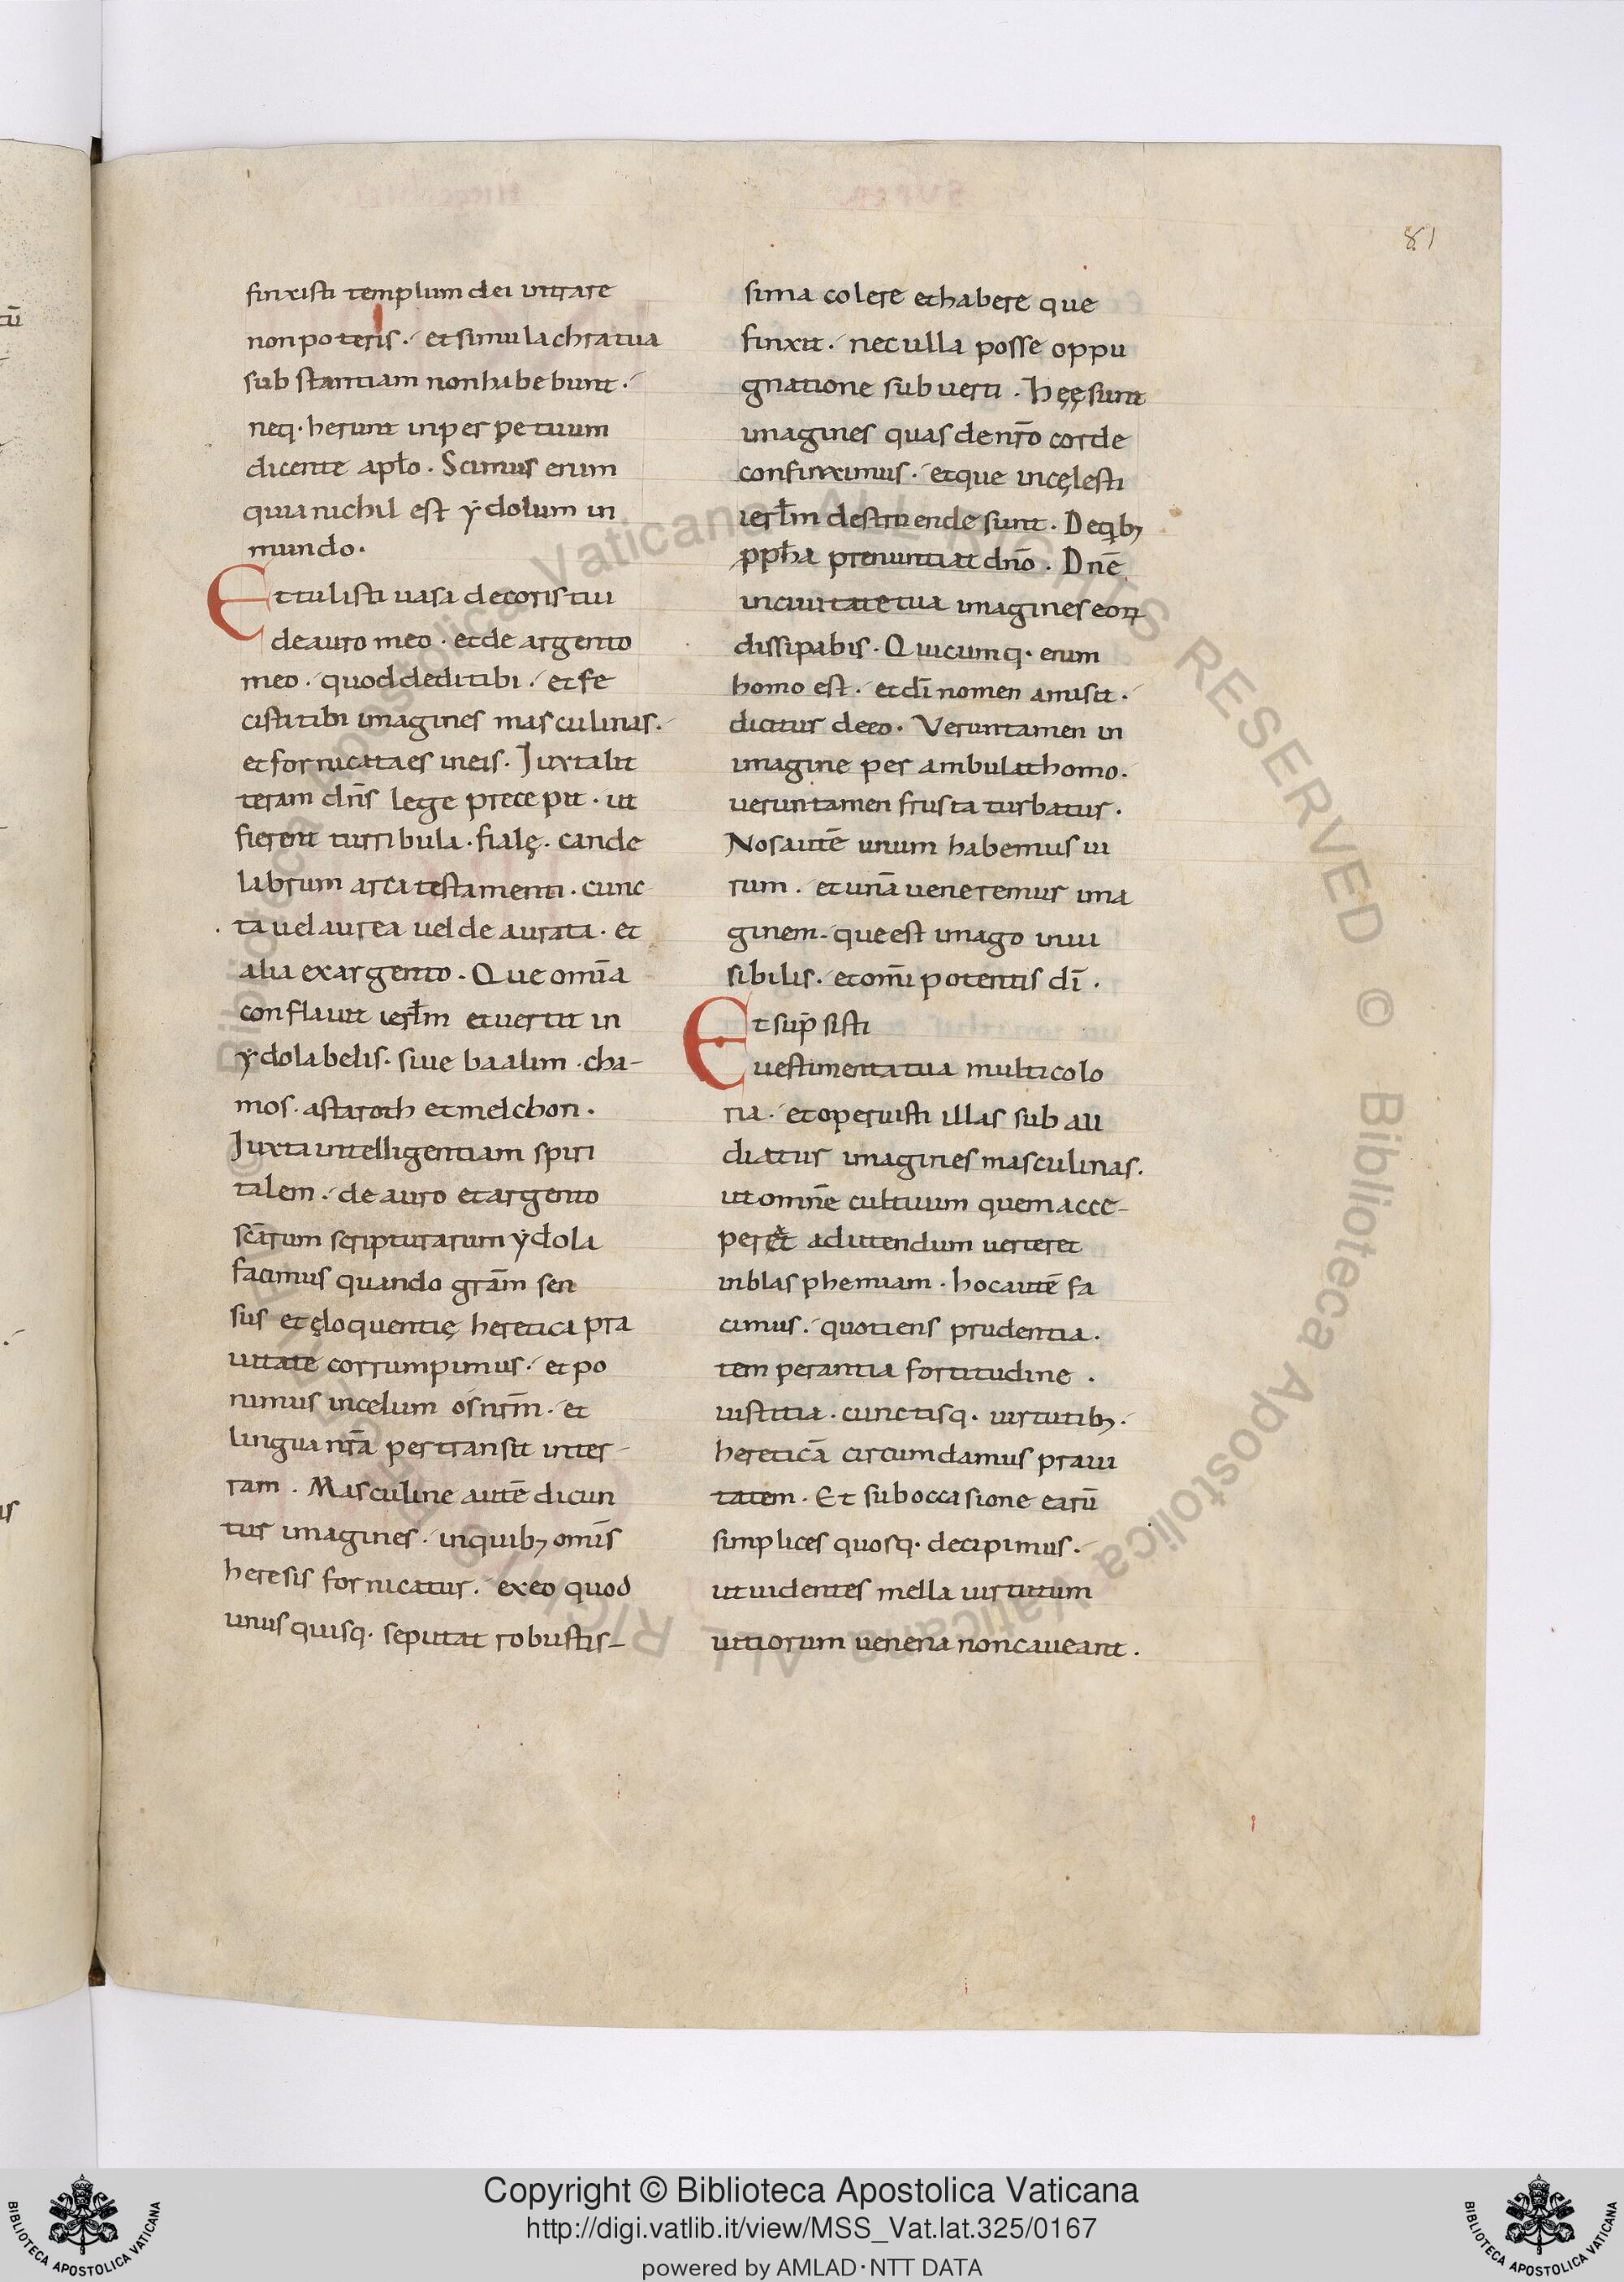 81
finxisti templum dei intrare
non poteris. et simulachra tua
substantiam non habebunt.
neq. herunt in perpetuum
dicente aplo. Scimus enim
quia nichil est ẏdolum in
mundo.
Et tulisti uasa decoris tui
de auro meo. et de argento
meo. quod dedi tibi. et fe
cisti tibi imagines masculinas.
et fornicata es in eis. Iuxta lit
teram dn̄s lege precepit. ut
fierent turribula. fialę. cande
labrum arca testamenti. cunc
ta uel aurea uel de aurata. et
alia ex argento. Que omīa
conflauit ierłm et uertit in
ẏdola belis. siue baalim. cha-
mos. astaroth et melchon.
Iuxta intelligentiam spiri
talem. de auro et argento
scārum scripturarum ẏdola
facimus quando grām sen
sus et ęloquentię heretica pra
uitate corrumpimus. et po
nimus in celum os nrm̄. et
lingua nrā pertransit in ter-
ram. Masculine autē dicun
tur imagines. in quibꝫ omīs
heresis fornicatur. ex eo quod
unus quisq. se putat robustis-
sima colere et habere que
finxit. nec ulla posse oppu
gnatione subuerti. Hęę sunt
imagines quas de nrō corde
confinximus. et que in cęlesti
ierłm destruende sunt. De qꝫ
ppħa prenuntiat dnō. Dnē
in ciuitate tua imagines eoꝝ
dissipabis. Quicumq. enim
homo est. et dī nomen amisit.
dicitur de eo. Veruntamen in
imagine perambulat homo.
ueruntamen frusta turbatur.
Nos autē unum habemus ui
rum. et unā ueneremur ima
ginem. que est imago inui
sibilis. et omīpotentis dī.
Et sup̄sisti
uestimenta tua multicolo
ria. et operuisti illas sub au
diatur imagines masculinas.
ut omnē cultuum quem acce-
peret ad utendum uerteret
in blasphemiam. hoc autē fa
cimus. quotiens prudentia.
temperantia fortitudine.
iustitia. cunctisq. uirtutibꝫ.
hereticā circumdamus praui
tatem. Et sub occasione earū
simplices quosq. decipimus.
ut uidentes mella uirtutum
uitiorum uenena non caueant.
Copyright © Biblioteca Apostolica Vaticana
http://digi.vatlib.it/view/MSS_Vat.lat.325/0167
powered by AMLAD·NTT DATA